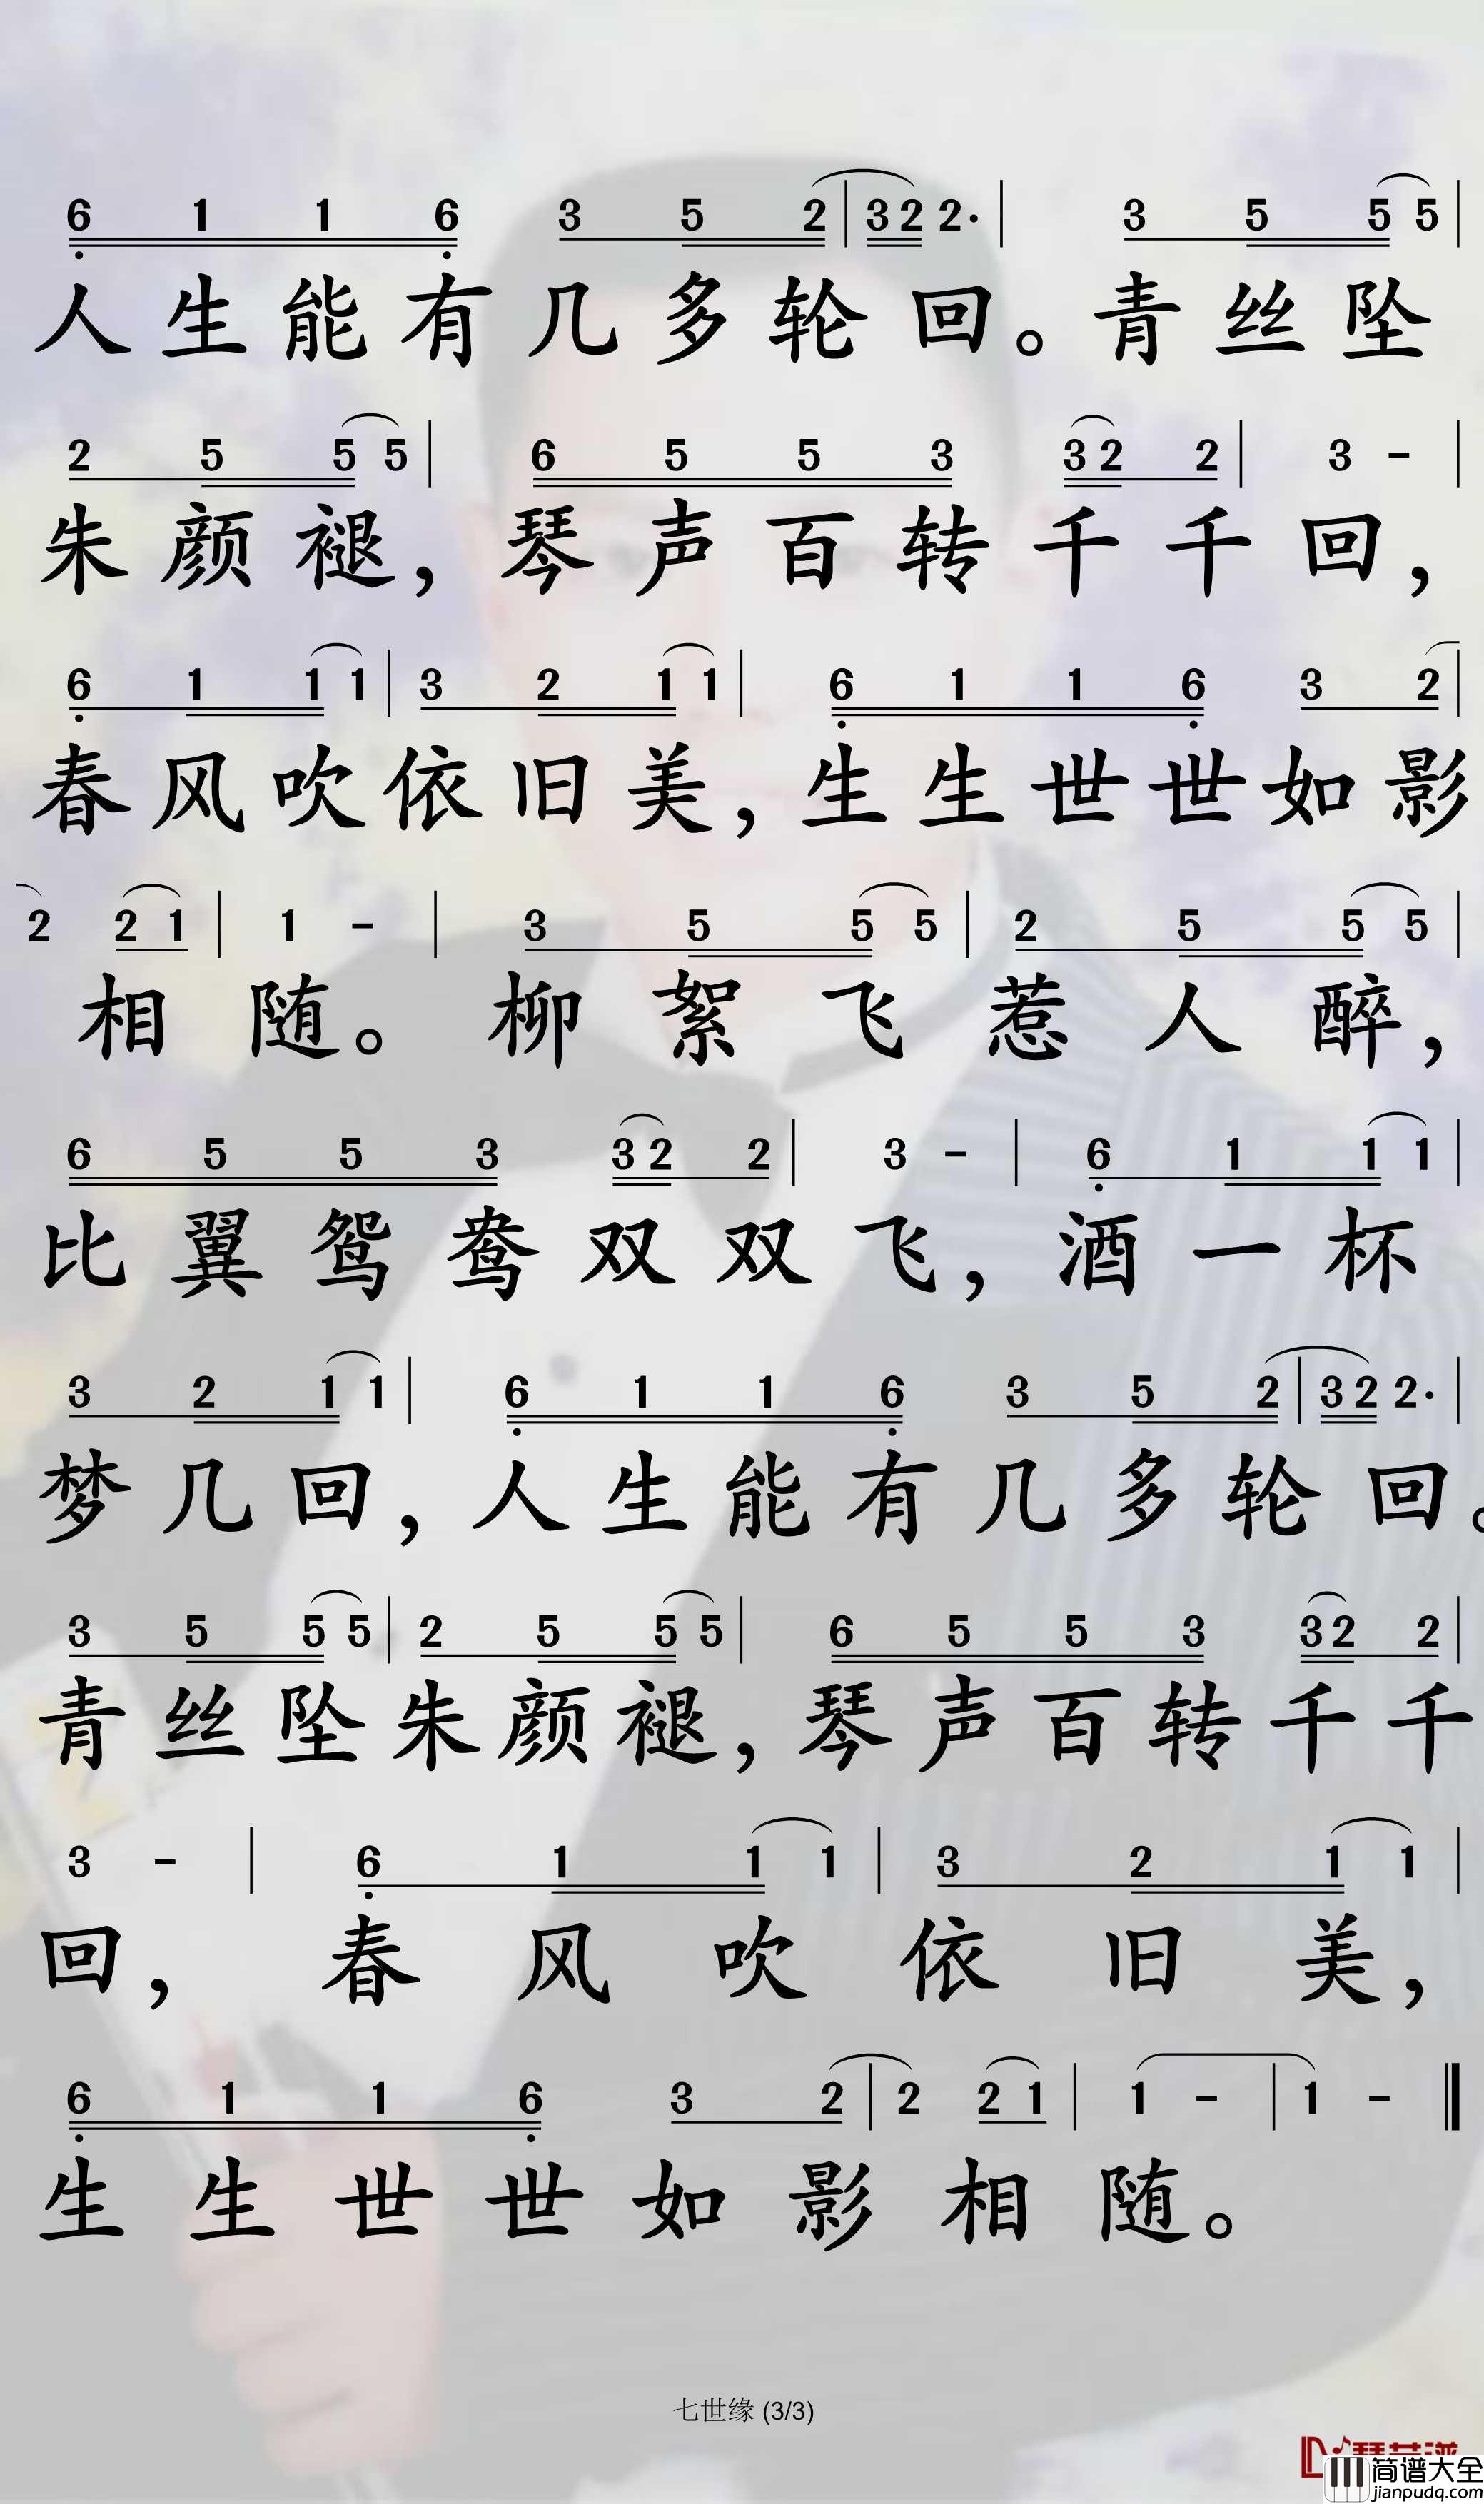 6 1 1 6 3 5 2 | 3 2 2· | 3 5 5 5 |
人生能有几多轮回。青丝坠
2 5 5 5 | 6 5 5 3 3 2 2 | 3 - |
朱颜褪，琴声百转千千回，
6 1 1 1 | 3 2 1 1 | 6 1 1 6 3 2 |
春风吹依旧美，生生世世如影
2 2 1 | 1 - | 3 5 5 5 | 2 5 5 5 |
相随。柳絮飞惹人醉，
6 5 5 3 3 2 2 | 3 - | 6 1 1 1 |
比翼鸳鸯双双飞，酒一杯
3 2 1 1 | 6 1 1 6 3 5 2 | 3 2 2· |
梦几回，人生能有几多轮回。
3 5 5 5 | 2 5 5 5 | 6 5 5 3 3 2 2 |
青丝坠朱颜褪，琴声百转千千
3 - | 6 1 1 1 | 3 2 1 1 |
回，春风吹依旧美，
6 1 1 6 3 2 | 2 2 1 | 1 - | 1 - ‖
生生世世如影相随。
七世缘 (3/3)
简谱大全
jianpudq.com